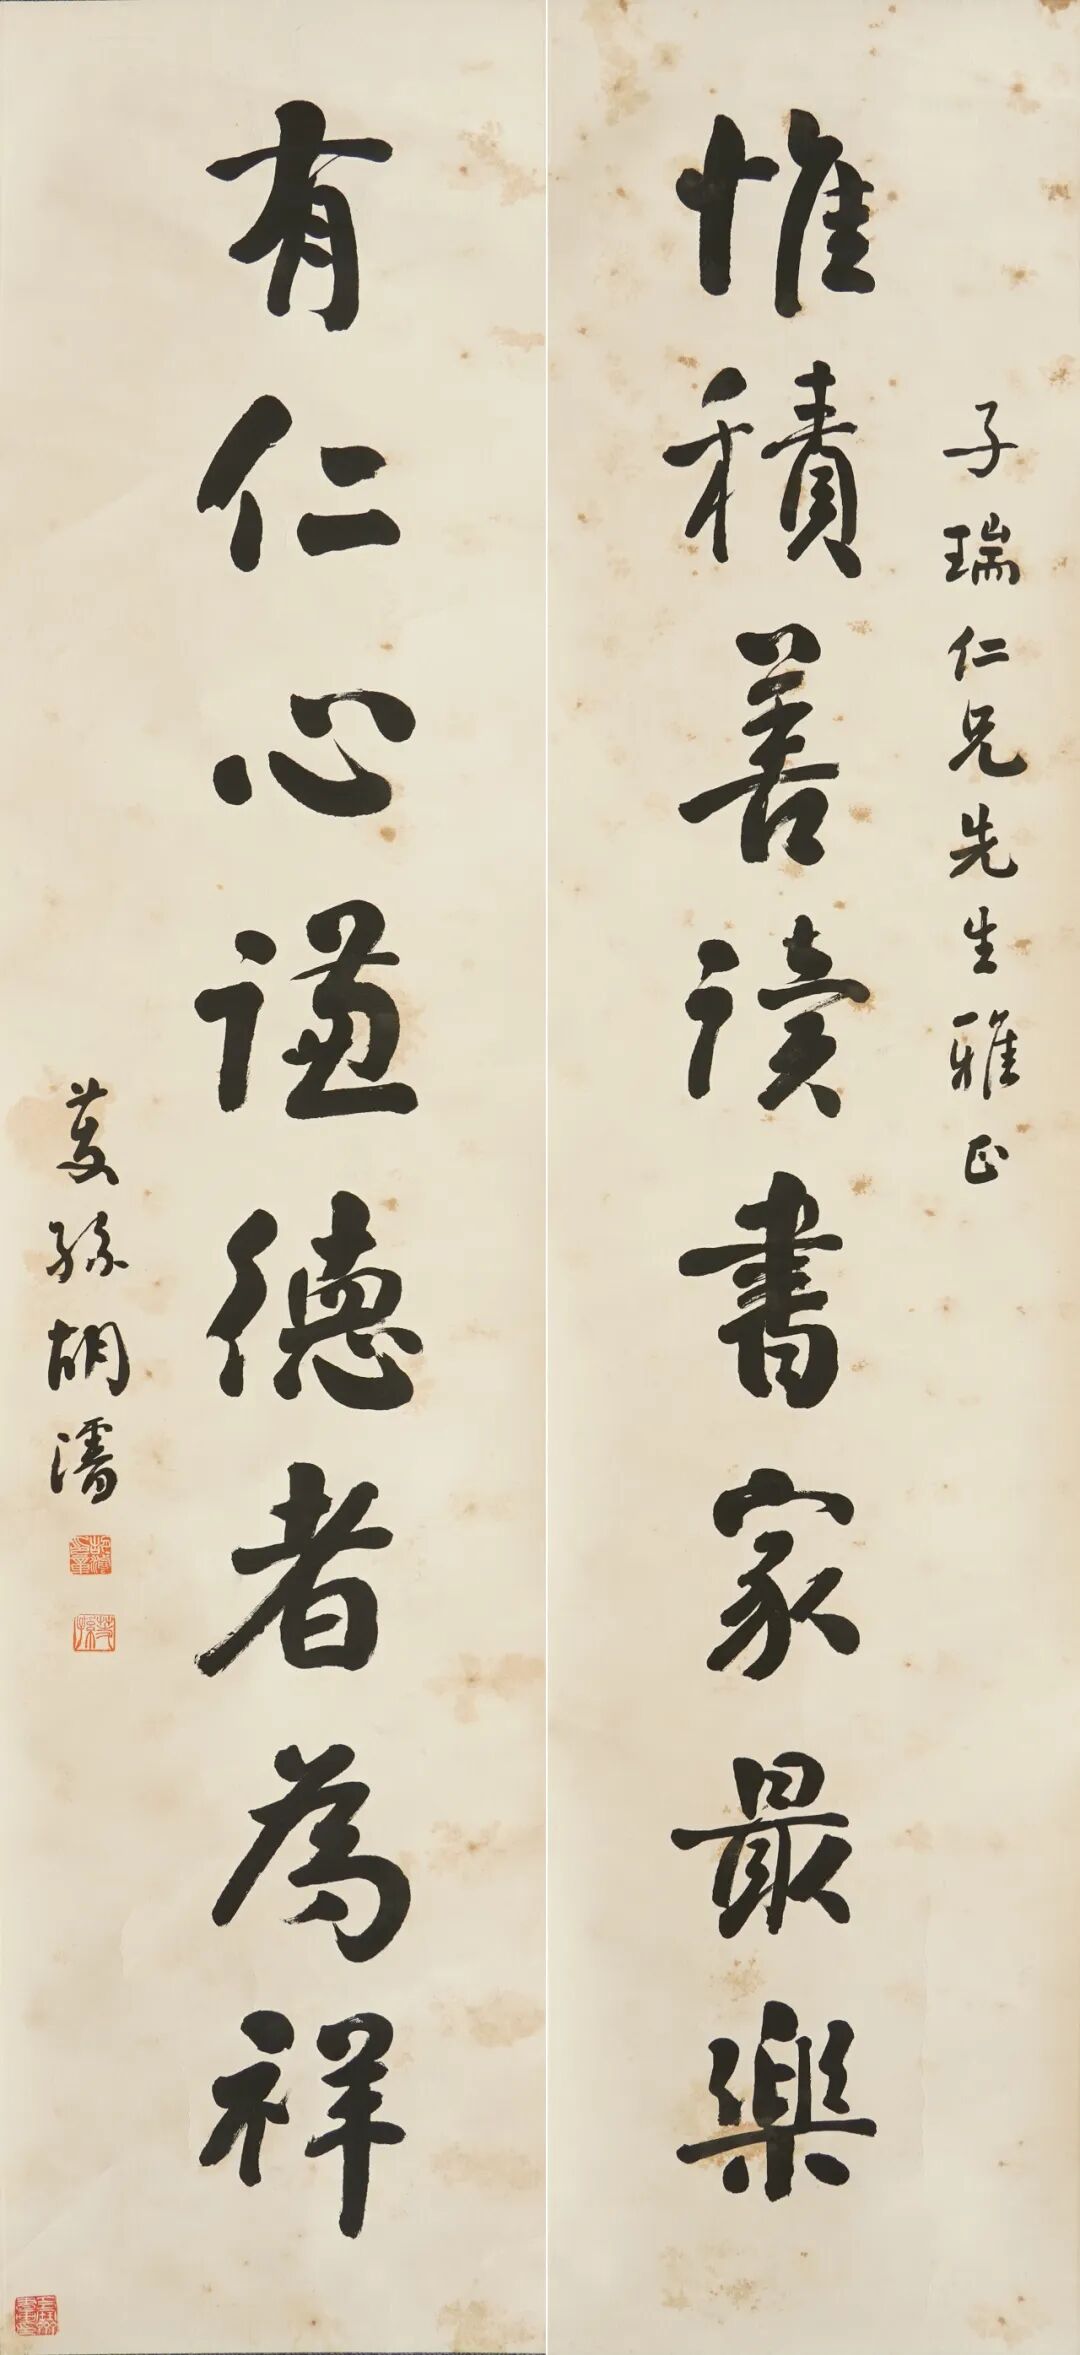 子瑞仁兄先生雅正
惟積善讀書家最樂
有仁心謙德者為祥
孫胡濬